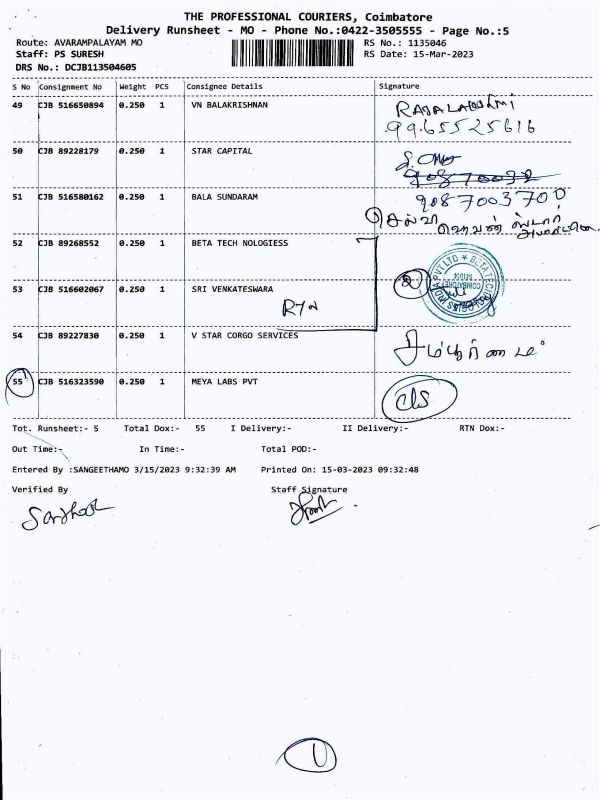 THE PROFESSIONAL COURIERS, Coimbatore
Delivery Runsheet - MO - Phone No.:0422-3505555 - Page No.:5
Route: AVARAMPALAYAM MO RS No.: 1135046
Staff: PS SURESH RS Date: 15-Mar-2023
DRS No.: DCJB113504605
S No Consignment No Weight PCS Consignee Details Signature
49 CJB 516650894 0.250 1 VN BALAKRISHNAN RAJALAKSHMI
9965525616
50 CJB 89228179 0.250 1 STAR CAPITAL
90870032
51 CJB 516580162 0.250 1 BALA SUNDARAM 9087003700
செல்வி
52 CJB 89268552 0.250 1 BETA TECH NOLOGIESS
53 CJB 516602067 0.250 1 SRI VENKATESWARA 2
54 CJB 89227830 0.250 1 V STAR CORGO SERVICES
55 CJB 516323590 0.250 1 MEYA LABS PVT
Tot. Runsheet:- 5 Total Dox:- 55 I Delivery:- II Delivery:- RTN Dox:-
Out Time:- In Time:- Total POD:-
Entered By :SANGEETHAMO 3/15/2023 9:32:39 AM Printed On: 15-03-2023 09:32:48
Verified By Staff Signature
1